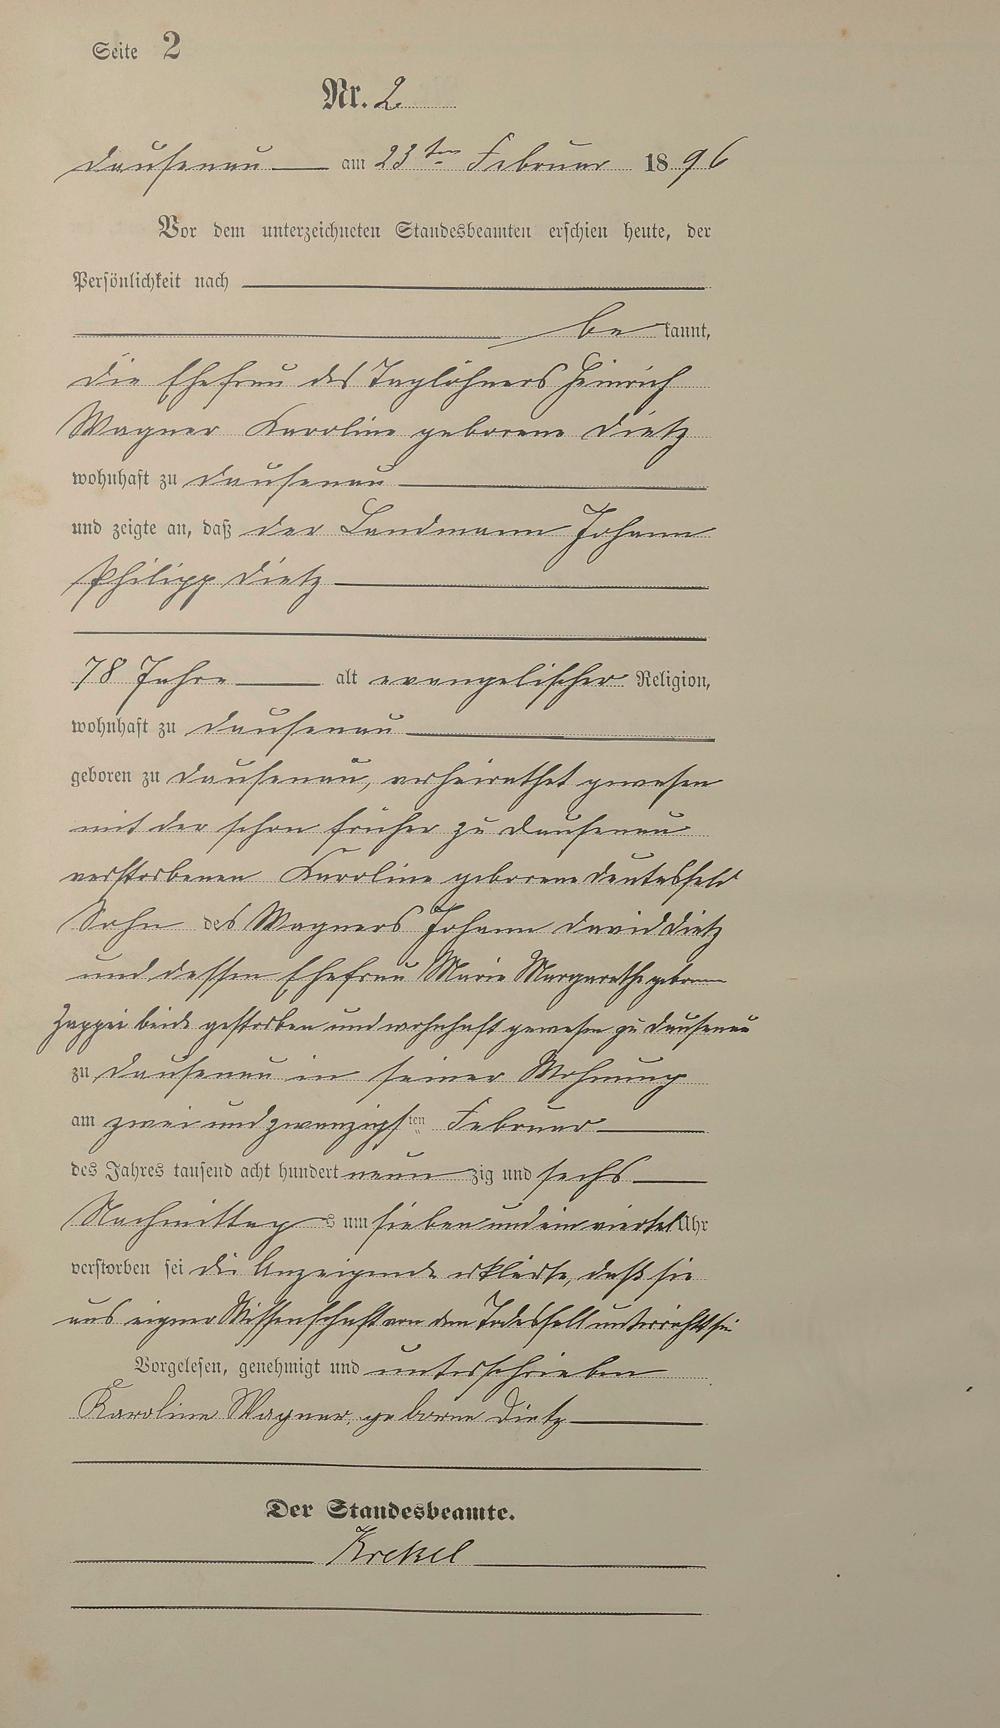 Seite 2
Nr. 2
Dausenau am 23ten Februar 1896
Vor dem unterzeichneten Standesbeamten erschien heute, der
Persönlichkeit nach
bekannt,
die Ehefrau des Taglöhners Heinrich
Wagner Karoline geborene Dietz
wohnhaft zu Dausenau
und zeigte an, daß der Landmann Johann
Philipp Dietz
78 Jahre alt evangelischer Religion,
wohnhaft zu Dausenau
geboren zu Dausenau, verheirathet gewesen
mit der schon früher zu Dausenau
verstorbenen Karoline geborene
Sohn des Wagners Johann David Dietz
und dessen Ehefrau Marie Margarethe geborene
beide gestorben und wohnhaft gewesen zu Dausenau
zu Dausenau in seiner Wohnung
am zwei und zwanzigsten Februar
des Jahres tausend acht hundert neunzig und sechs
Nachmittags um sieben und ein viertel Uhr
verstorben sei die Anzeigende erklärte, daß sie
aus eigner Wissenschaft von dem Todesfall unterrichtet sei
Vorgelesen, genehmigt und unterschrieben
Karoline Wagner, geborne Dietz
Der Standesbeamte.
Krekel